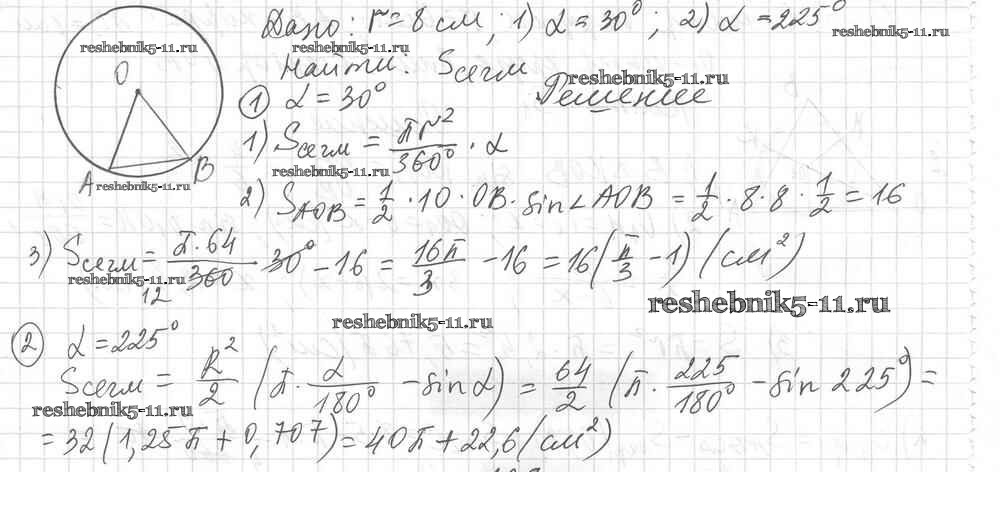 Дано: r = 8 см; 1) α = 30°; 2) α = 225°
reshebnik5-11.ru reshebnik5-11.ru reshebnik5-11.ru
Найти: Sсегм
reshebnik5-11.ru
О
① α = 30° Решение
1) Sсегм = πr²/360° · α
reshebnik5-11.ru
А В
reshebnik5-11.ru
2) SАОВ = 1/2 · 10 · ОВ · sin∠АОВ = 1/2 · 8 · 8 · 1/2 = 16
3) Sсегм = π·64/360 · 30° - 16 = 16π/3 - 16 = 16(π/3 - 1) (см²)
reshebnik5-11.ru
12
reshebnik5-11.ru
reshebnik5-11.ru
② α = 225°
Sсегм = R²/2 (π · α/180° - sin α) = 64/2 (π · 225/180° - sin 225°) =
reshebnik5-11.ru
= 32(1,25π + 0,707) = 40π + 22,6 (см²)